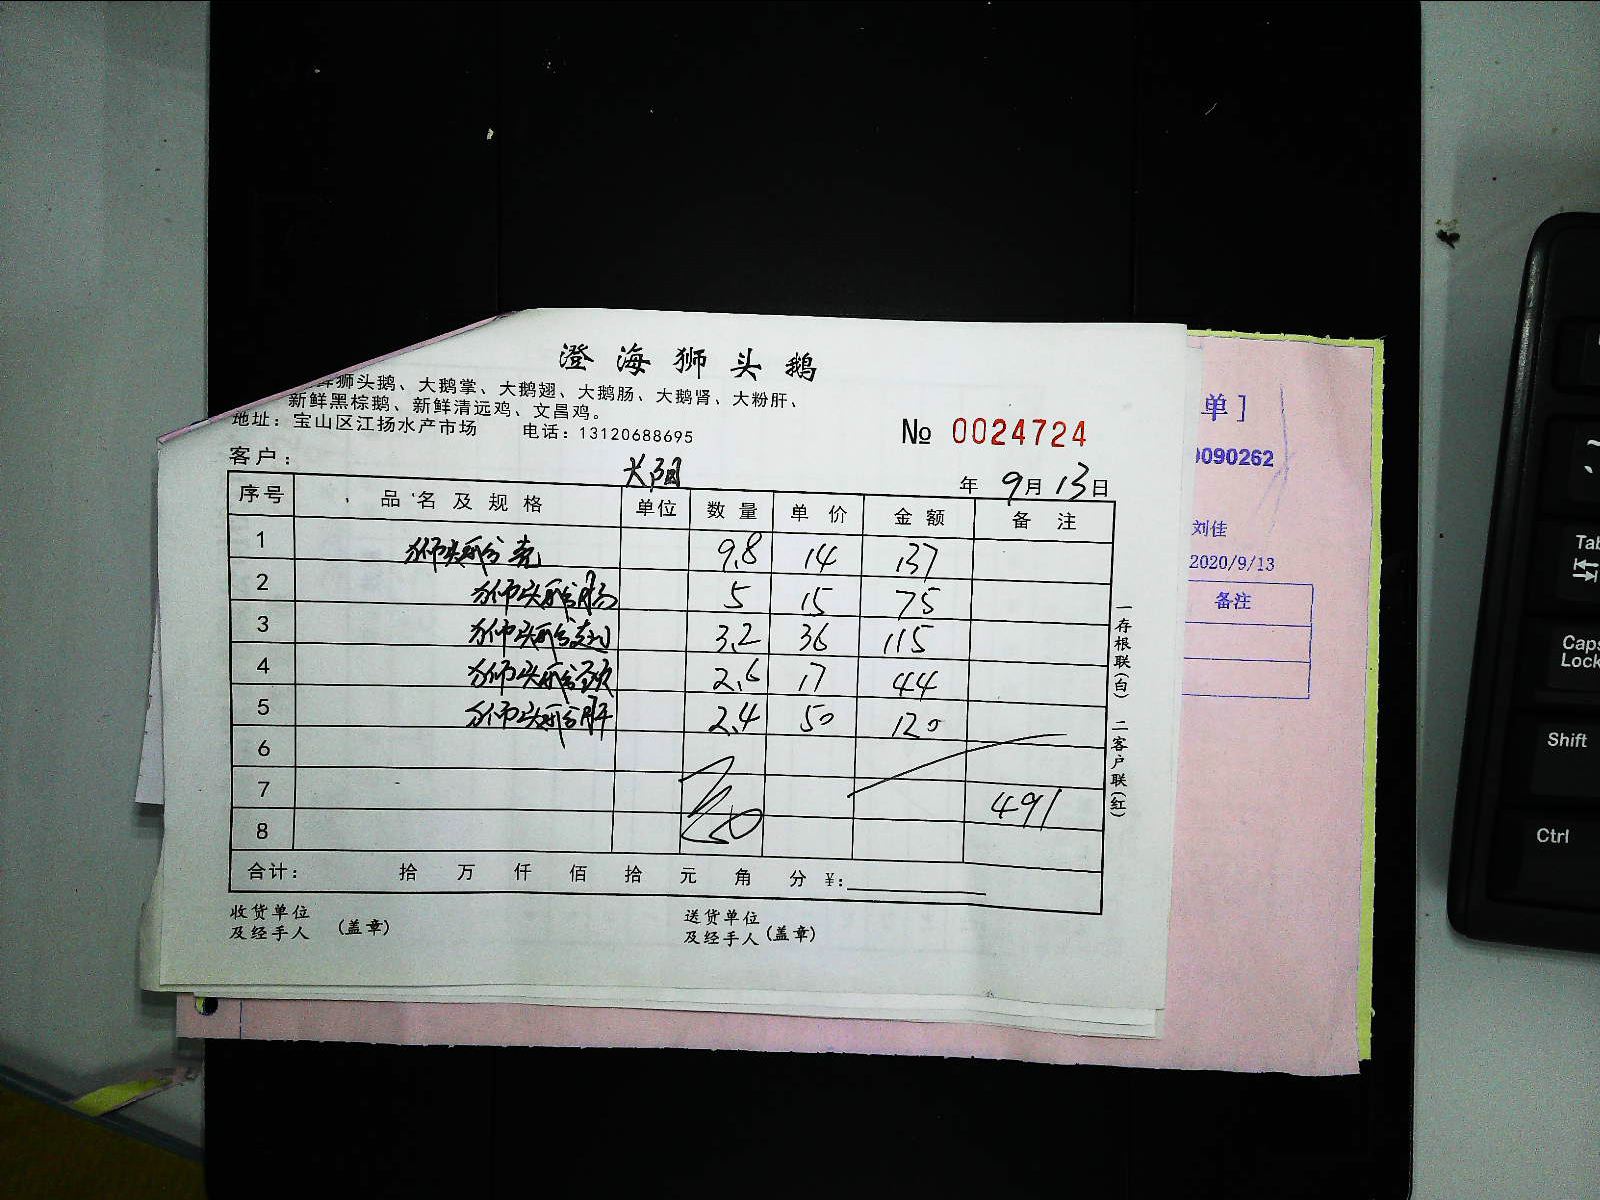 澄海狮头鹅
狮头鹅、大鹅掌、大鹅翅、大鹅肠、大鹅肾、大粉肝、
新鲜黑棕鹅、新鲜清远鸡、文昌鸡。
地址：宝山区江扬水产市场 电话：13120688695
№ 0024724
客户：
年 9月13日
序号 品名及规格 单位 数量 单价 金额 备注
1 狮头 9.8 14 137
2 狮头 肠 5 15 75
3 狮头 翅 3.2 36 115
4 狮头 2.6 17 44
5 狮头 肝 2.4 50 120
6
7 491
8
合计： 拾 万 仟 佰 拾 元 角 分 ¥:
收货单位
及经手人 (盖章)
送货单位
及经手人 (盖章)
一存根联(白) 二客户联(红)
单]
090262
刘佳
2020/9/13
备注
Tab
Caps
Lock
Shift
Ctrl